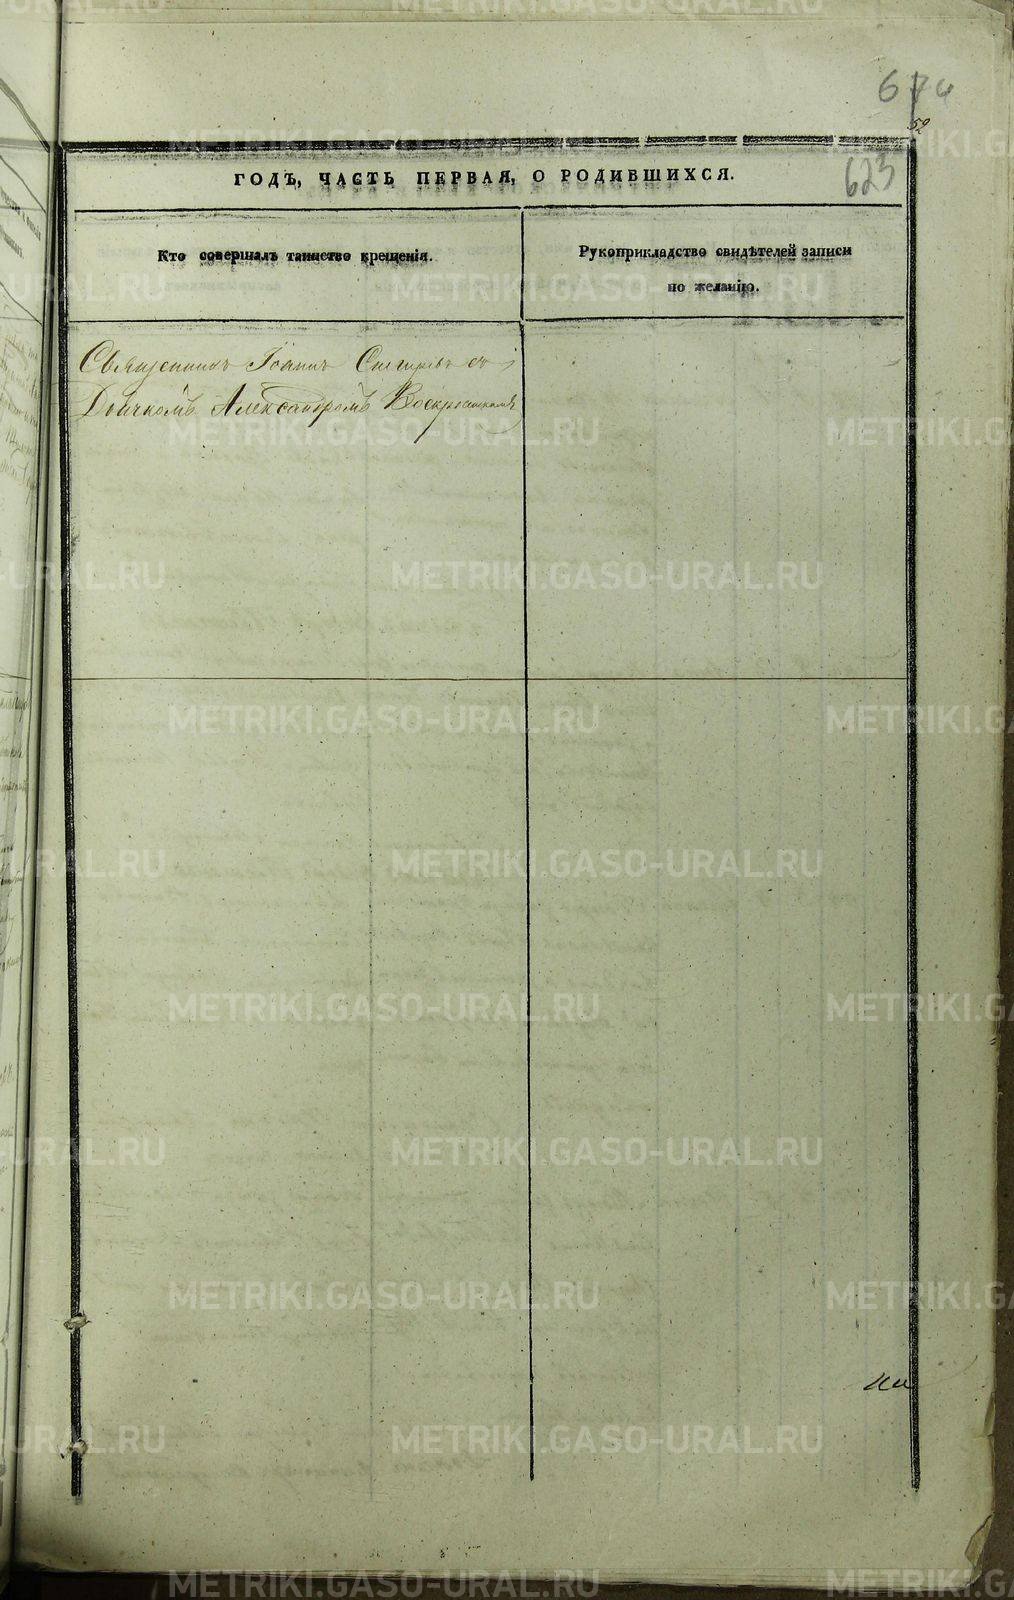 623
ГОДЪ, ЧАСТЬ ПЕРВАЯ, О РОДИВШИХСЯ.
Кто совершалъ таинство крещенія.
Рукоприкладство свидѣтелей записи
по желанію.
Священникъ Іоаннъ съ
Дьячкомъ Александромъ Воскресенскимъ
METRIKI.GASO-URAL.RU